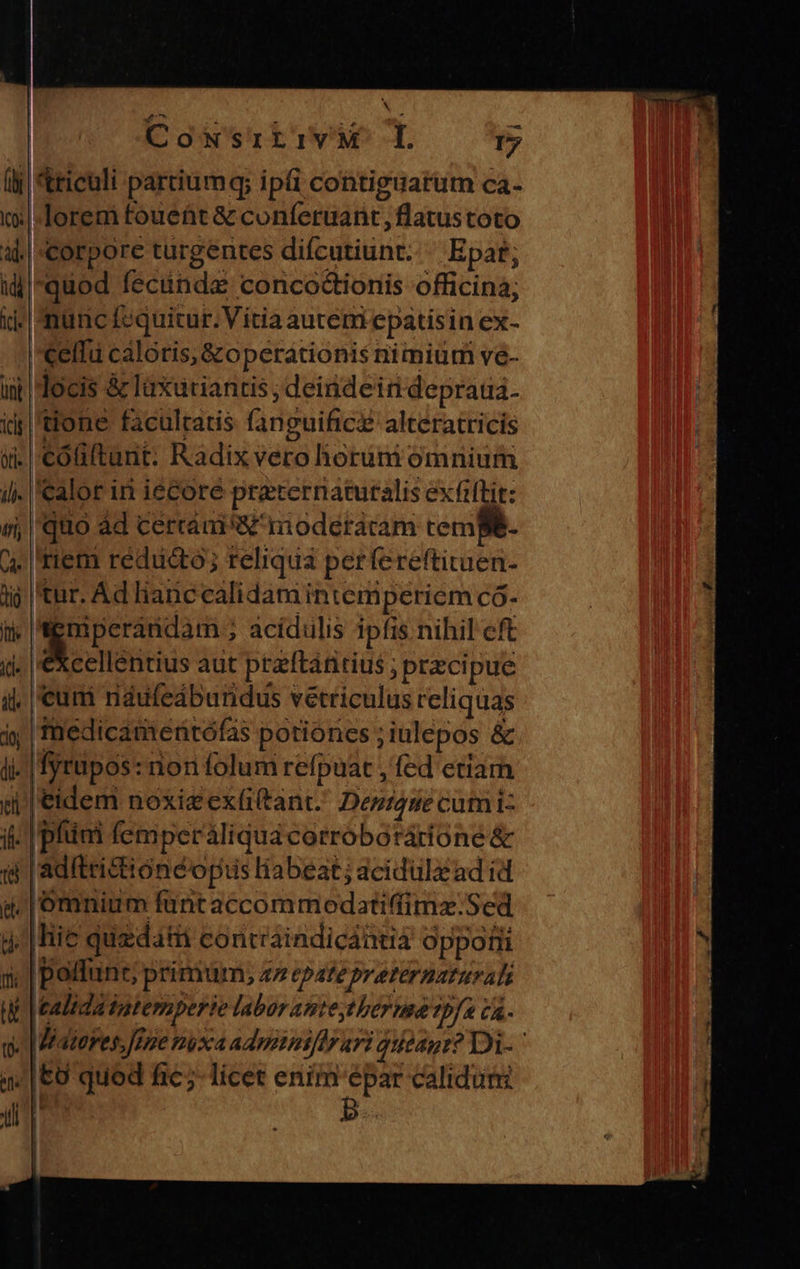 CONSILIVM I. 17
triculi partiumq; ipſi contiguarum ca-
lorem fouent & conſeruant, flatus toto
corpore turgentes diſcutiunt. Epar,
quod ſecundæ concoctionis officina,
nunc ſequitur. Vitia autem epatis in ex-
ceſſu caloris, & operationis nimiùm ve-
locis & luxuriantis, deinde in deprauá-
tione facultatis ſanguificæ alteratricis
cõſiſtunt. Radix vero horum omnium
calor in iecore præternaturalis exſiſtit:
quo ád certam & moderatam tempe-
riem reducto; reliqua per ſe reſtituen-
tur. Ad hanc calidam intemperiem cõ-
temperandam; acidulis ipſis nihil eſt
excellentius aut præſtantius; præcipue
cum nauſeabundus vẽtriculus reliquas
medicamentoſas potiones; iulepos &
ſyrupos: non ſolum reſpuat, ſed etiam
eidem noxiæ exſiſtant. Denique cum i-
pſum ſemper aliqua corroboratione &
adſtrictione opus habeat; acidulæ ad id
omnium ſunt accommodatiſſimæ. Sed
hic quædam contraindicantia opponi
poſſunt, primùm, an epate præternaturali
calida intemperie laborante, thermæ ipſa ca-
lidiores, ſine noxa adminiſtrari queant? Di-
co quod ſic; licet enim epar calidum
B